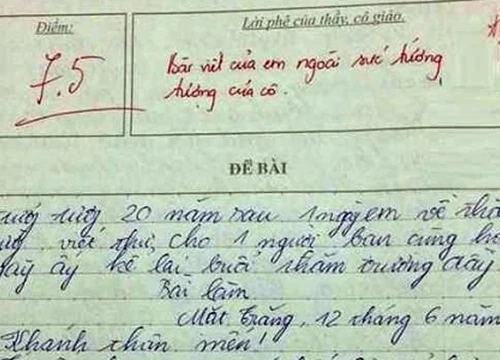 Điểm:
Lời phê của thầy, cô giáo.
7.5
Bài viết của em ngoài sức tưởng
tượng của cô.
ĐỀ BÀI
tượng 20 năm sau 1 ngày em về
viết thư cho 1 người bạn cùng
ấy kể lai buổi thăm trường đầy
Bài làm
Mặt Trăng, 12 tháng 6 năm
Khanh thân mến!